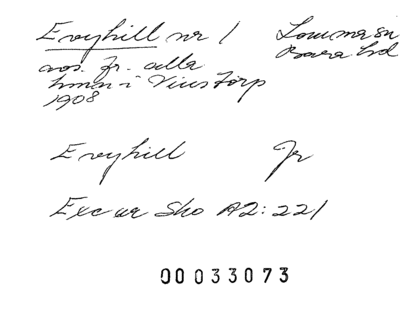 Evyhill nr 1 Lomma sn
Bara hd
avs. fr. alla
hmn i Vinstorp
1908
Evyhill Jr
Exc ur Sko A2:221
00033073